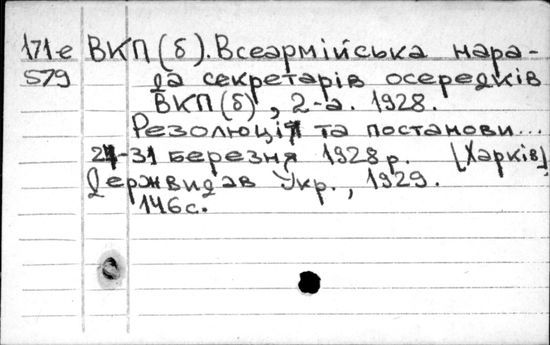 171-е ВКП(б). Всеармійська нара-
579 да секретарів осередків
ВКП(б), 2-а. 1928.
Резолюції та постанови...
24-31 березня 1928 р. [Харків]
Держвидав Укр., 1929.
146 с.